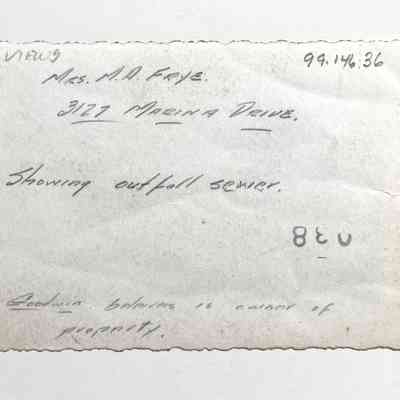 VIEWS
99.146.36
Mrs. M.A. Frye.
3127 Marina Drive.
Showing outfall sewer.
Goodwin believes is owner of
property.